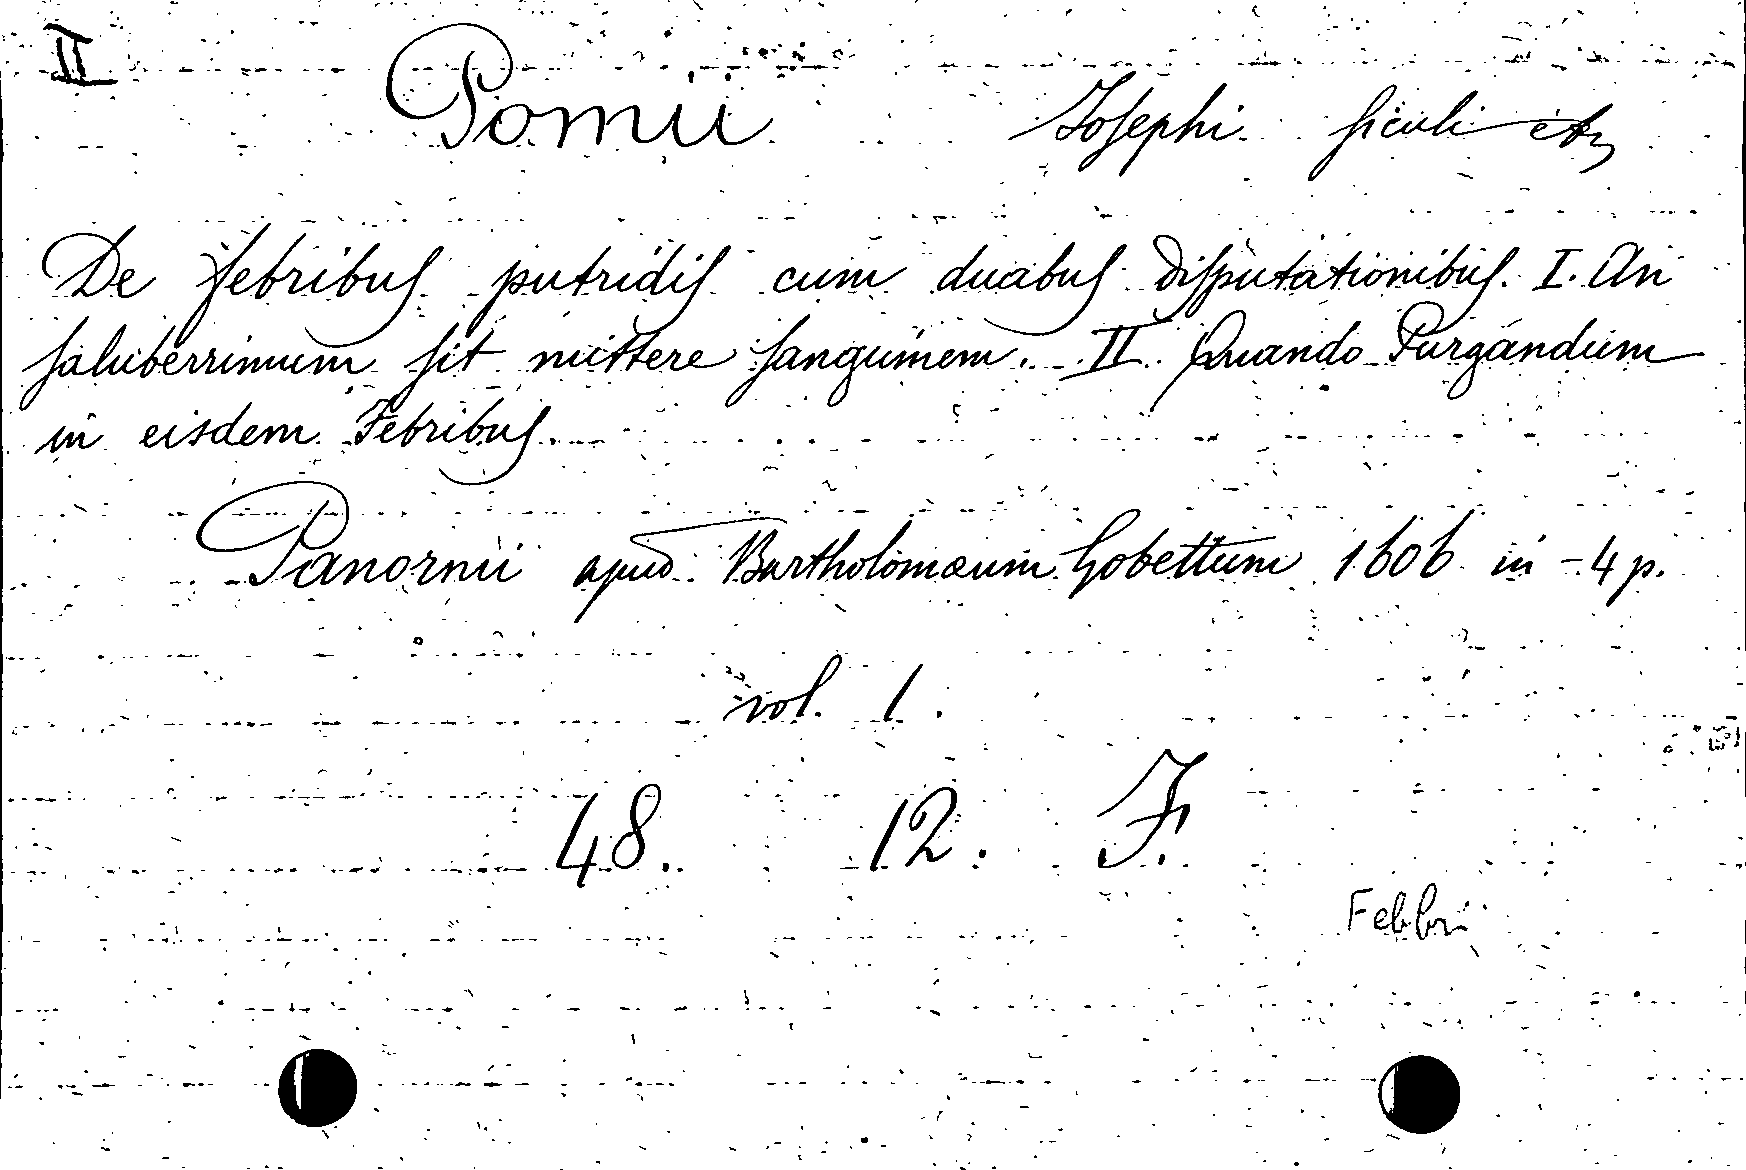 II Pomii Josephi siculi etc
De febribus putridis cum duabus Disputationibus. I. An
saluberrimum sit mittere sanguinem. II. Quando Purgandum
in eisdem Febribus.
Panormi apud Bartholomæum Gobettum 1606 in - 4 p.
vol. 1.
48. 12. F.
Febbri